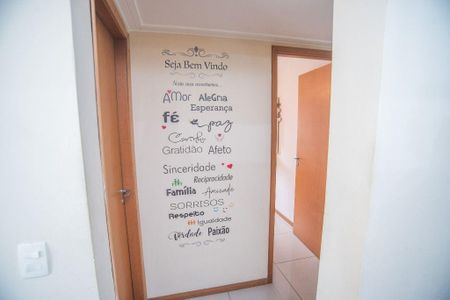 Seja Bem Vindo
Amor Alegria
Esperança
fé paz
Carinho
Gratidão Afeto
Sinceridade
Reciprocidade
Família Amizade
SORRISOS
Respeito
Igualdade
Verdade Paixão